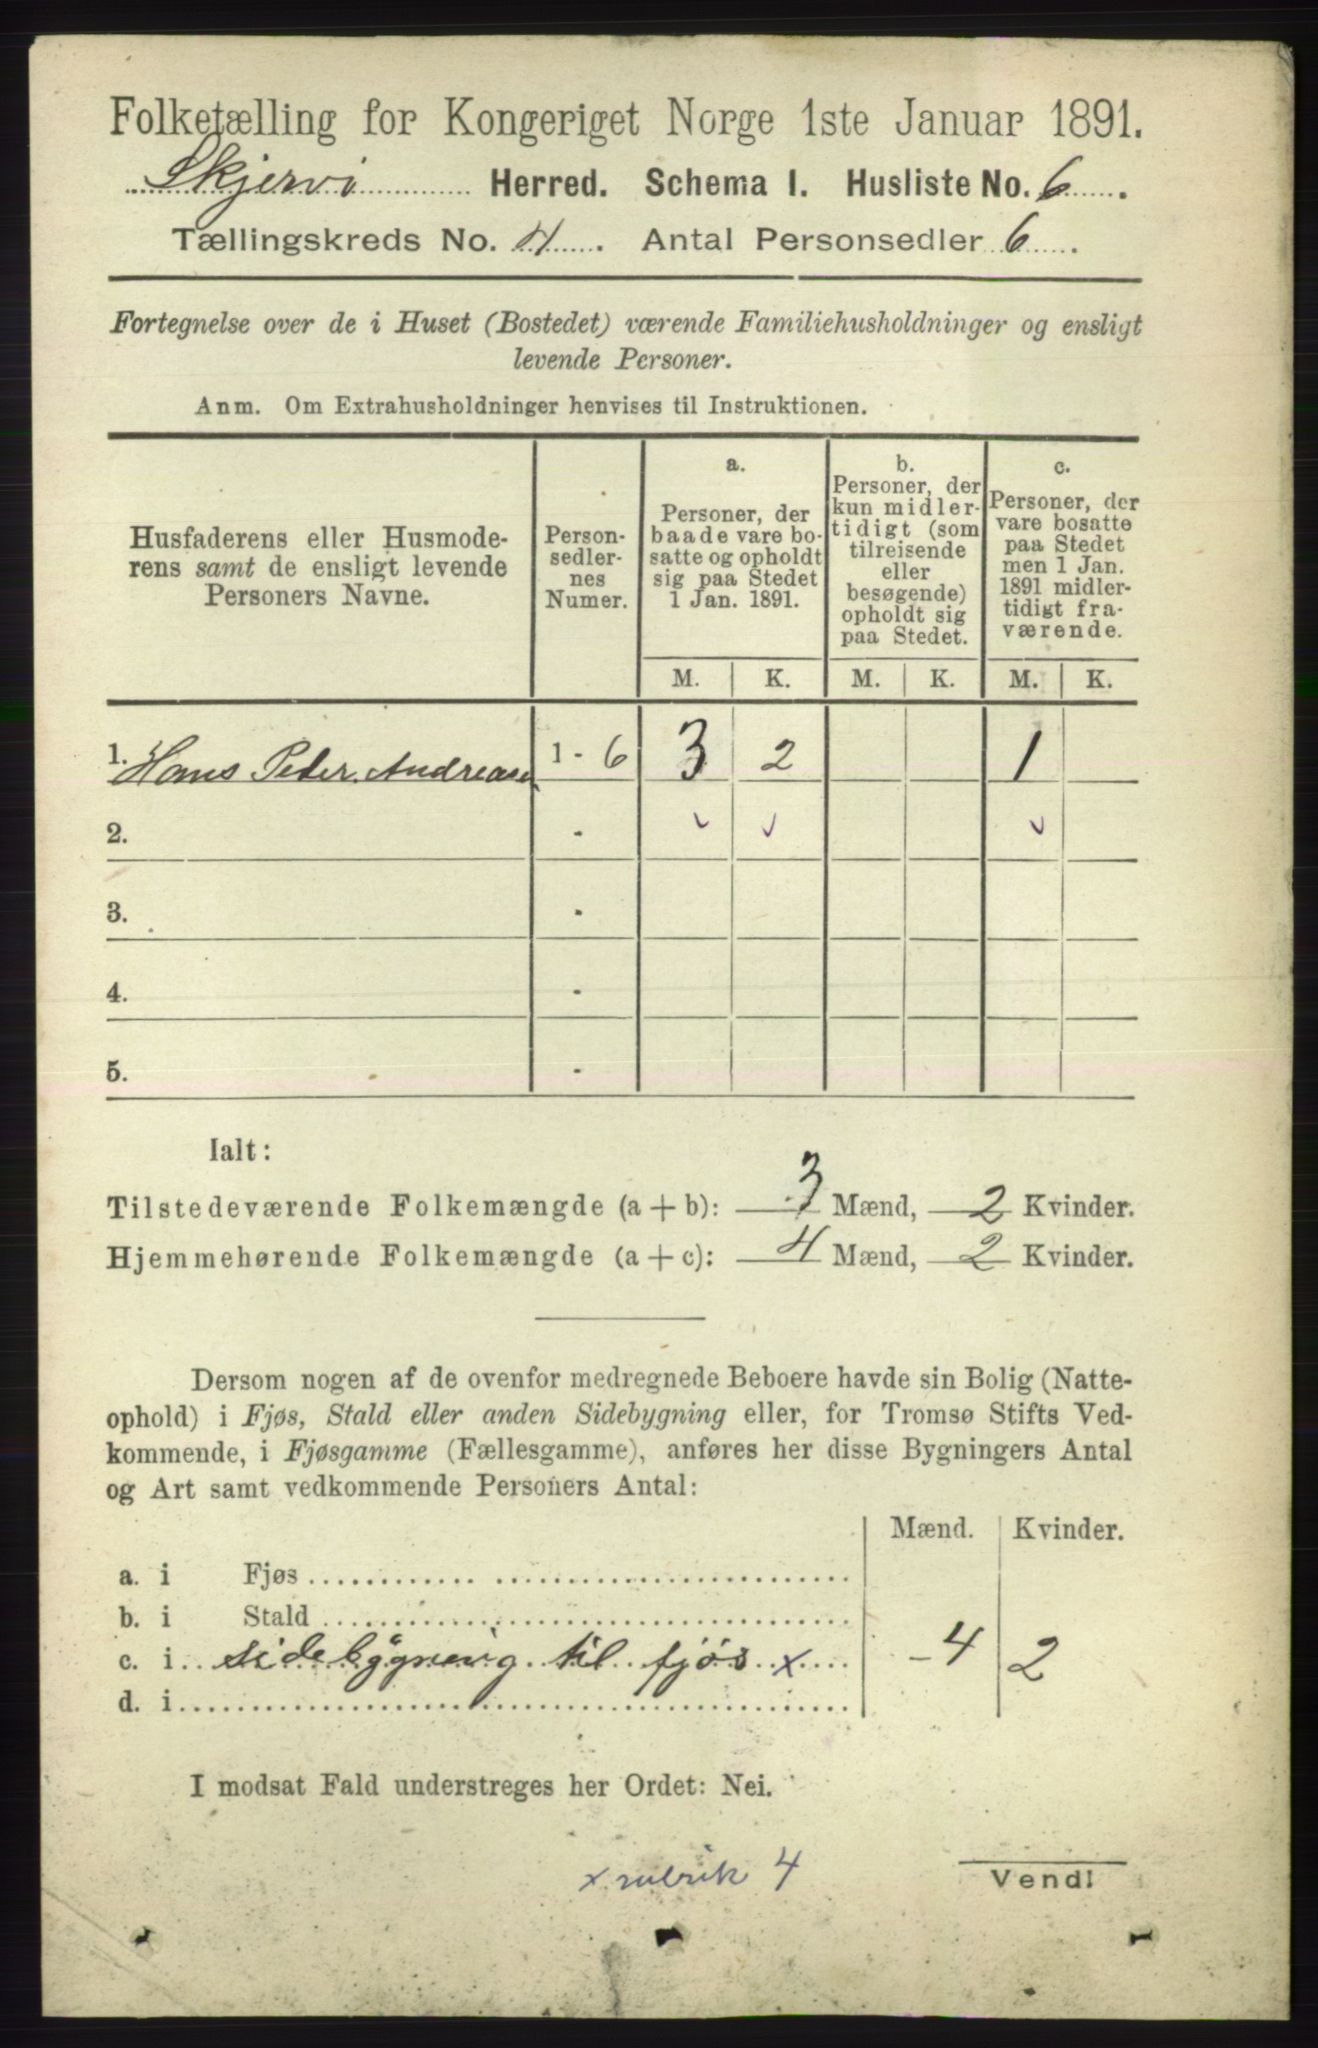 Folketælling for Kongeriget Norge 1ste Januar 1891.
Skjervö Herred. Schema I. Husliste No. 6.
Tællingskreds No. 4. Antal Personsedler 6.
Fortegnelse over de i Huset (Bostedet) værende Familiehusholdninger og ensligt
levende Personer.
Anm. Om Extrahusholdninger henvises til Instruktionen.
Husfaderens eller Husmode-
rens samt de ensligt levende
Personers Navne.
Person-
sedler-
nes
Numer.
a.
Personer, der
baade vare bo-
satte og opholdt
sig paa Stedet
1 Jan. 1891.
b.
Personer, der
kun midler-
tidigt (som
tilreisende
eller
besøgende)
opholdt sig
paa Stedet.
c.
Personer, der
vare bosatte
paa Stedet
men 1 Jan.
1891 midler-
tidigt fra-
værende.
M. K. M. K. M. K.
1. Hans Peder Andreasen 1 - 6 3 2 1
2. -
3. -
4. -
5. -
Ialt:
Tilstedeværende Folkemængde (a + b): 3 Mænd, 2 Kvinder.
Hjemmehørende Folkemængde (a + c): 4 Mænd, 2 Kvinder.
Dersom nogen af de ovenfor medregnede Beboere havde sin Bolig (Natte-
ophold) i Fjøs, Stald eller anden Sidebygning eller, for Tromsø Stifts Ved-
kommende, i Fjøsgamme (Fællesgamme), anføres her disse Bygningers Antal
og Art samt vedkommende Personers Antal:
Mænd. Kvinder.
a. i Fjøs
b. i Stald
c. i sidebygning til fjös x - 4 2
d. i
I modsat Fald understreges her Ordet: Nei.
x rubrik 4
Vend!